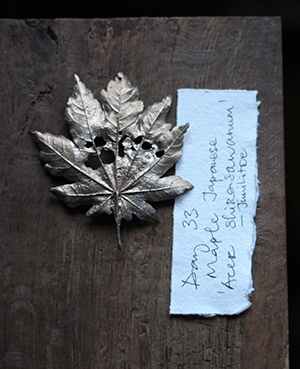 Day 33
Maple Japanese
'Acer Shirasawanum'
— Junihitoe